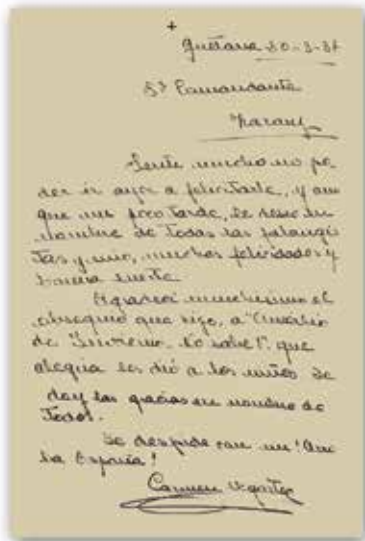 +
Guetaria 30-3-38
Sr Comandante
Zarauz
Sentí mucho no po
der ir ayer a felicitarle, y aun
que un poco tarde, le deseo en
nombre de todas las falangis
tas y mío, muchas felicidades y
buena suerte
Agradecí muchísimo el
obsequio que hizo, a "Auxilio
de Invierno. No sabe V. que
alegria les dió a los niños le
doy las gracias en nombre de
Todos.
Se despide con un ¡Arri
ba España!
Carmen